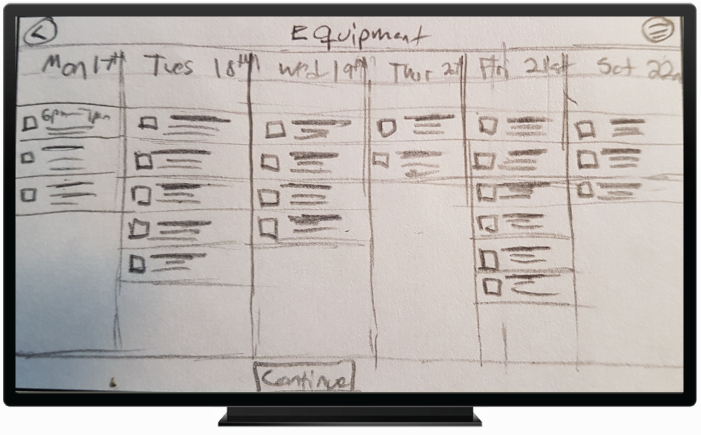 Equipment
Mon 17th Tues 18th Wed 19th Thur 20th Fri 21st Sat 22n
6pm-7pm
Continue